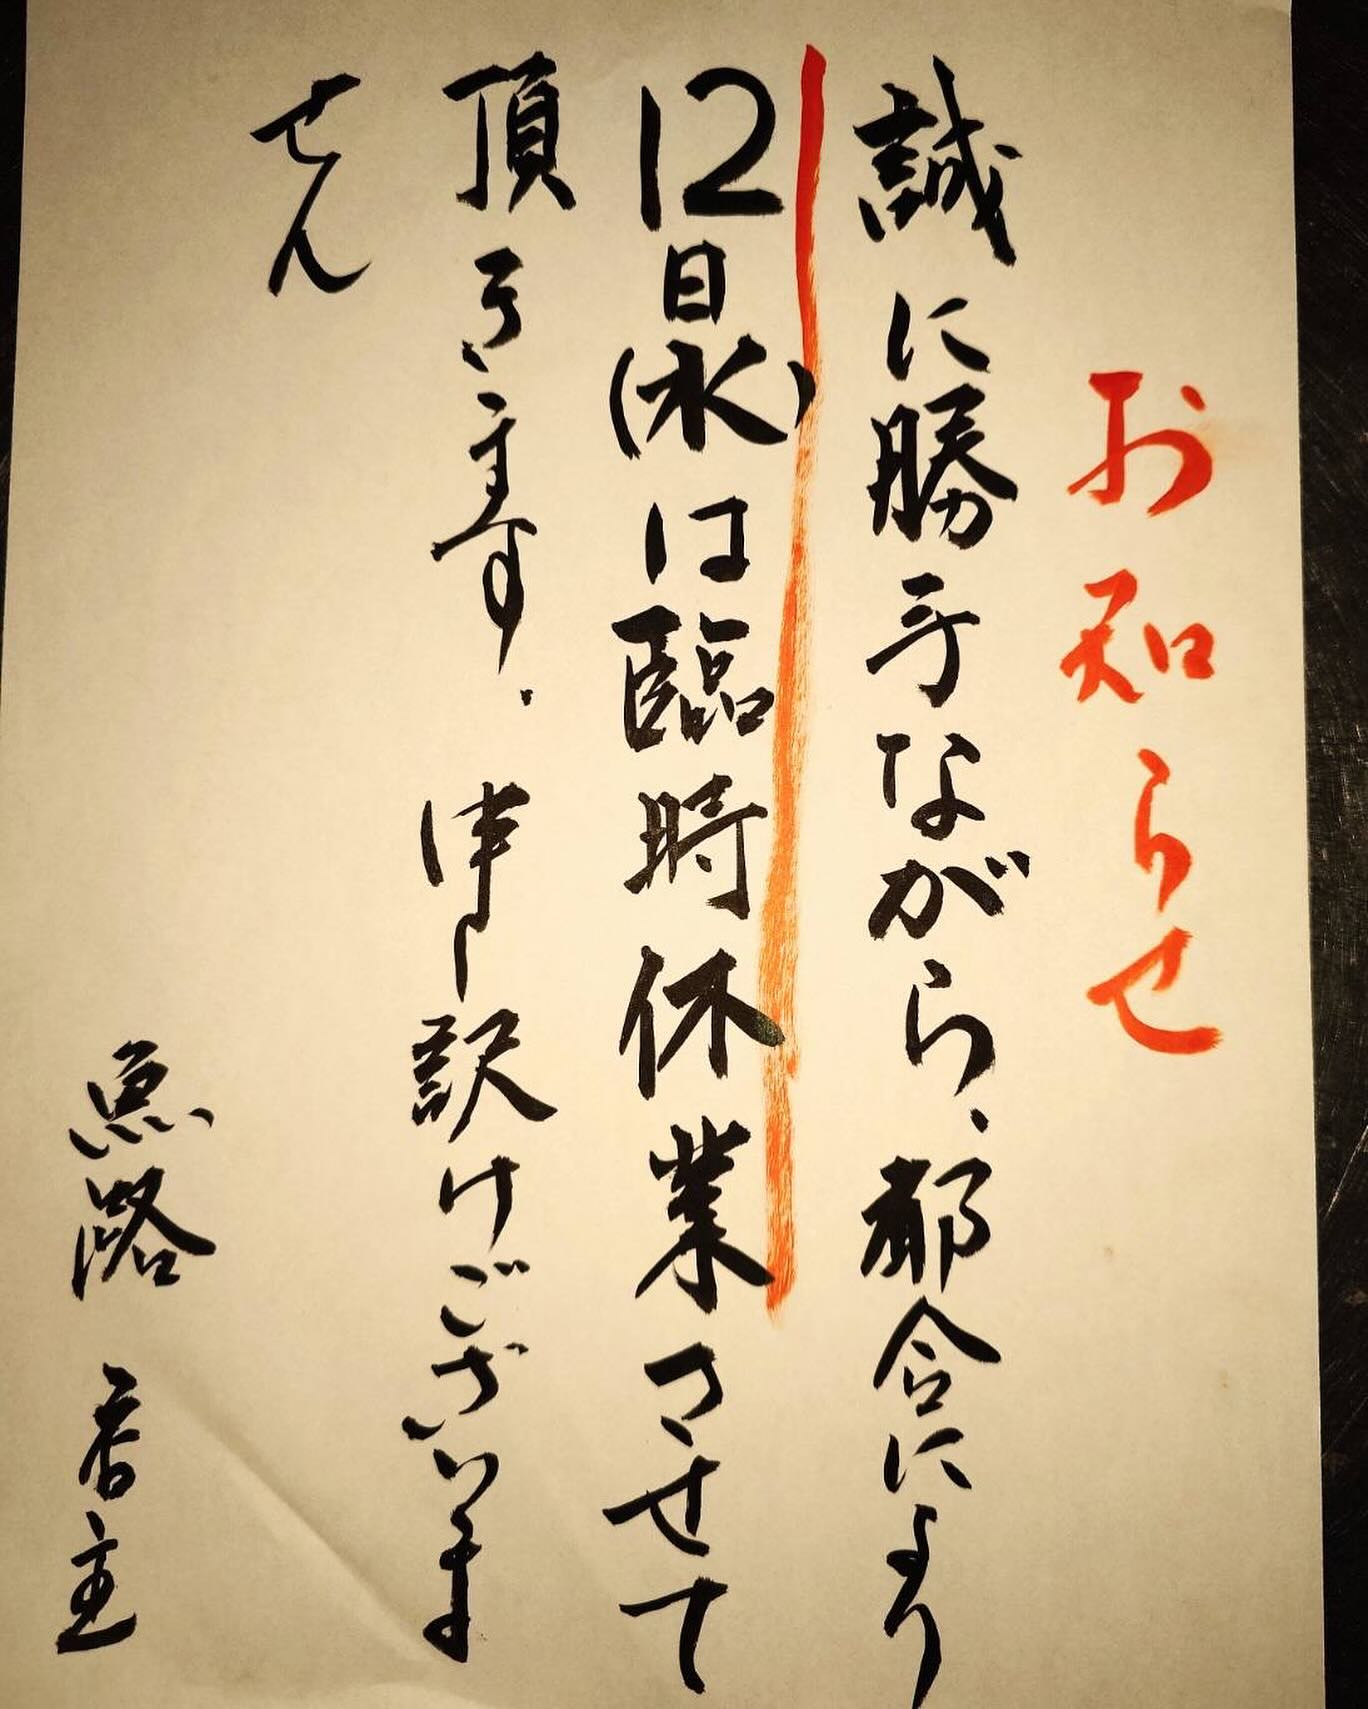 お知らせ
誠に勝手ながら、都合により
12日(水)は臨時休業させて
頂きます。申し訳けございま
せん
魚路 店主